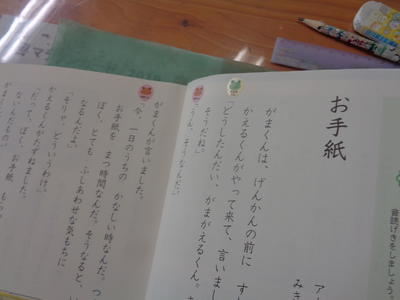 音読げきをしましょう。
お手紙
がまくんは、げんかんの前に
かえるくんがやって来て、言いまし
「どうしたんだい、がまがえるくん。
「うん、そうなんだ。」
そうだね。」
がまくんが言いました。
「今、一日のうちの かなしい時なんだ。つ
お手紙を まつ時間なんだ。そうなると、い
ぼく、とても ふしあわせな気もちに
なるんだよ。」
「そりゃ、どういうわけ。」
かえるくんがたずねました。
「だって、ぼく、お手紙
ないんだもの